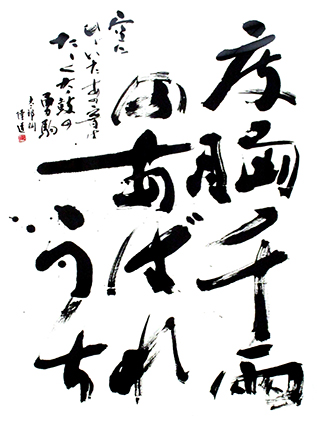 度胸千両
のあばれ
うち
空に
ひゞいたあの音は
たゝく太鼓の
勇駒